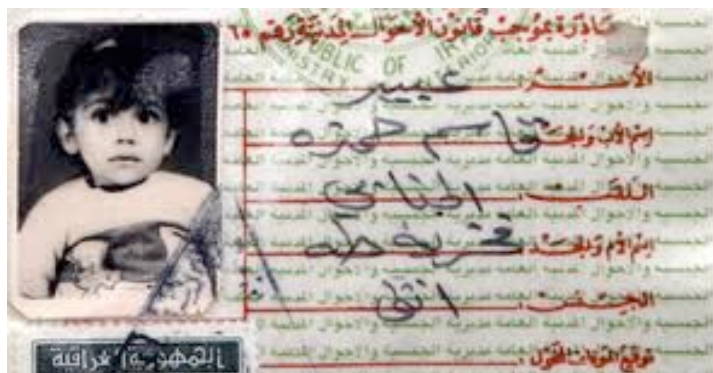 صادرة بموجب قانون الأحوال المدنية رقم ٦٥
REPUBLIC OF
الاسم عبير
اسم الأب والجد قاسم حمزه
اللقب الجنابي
اسم الأم والجد فخرية طه
الجنس انثى
توقيع الموظف المخول
الجمهورية العراقية